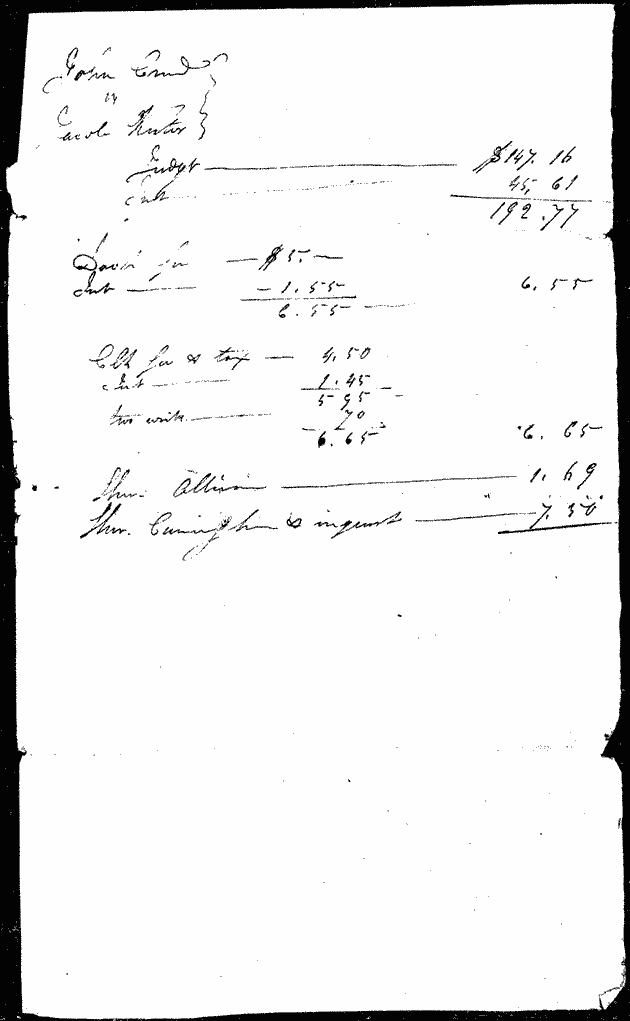 John
vs
Jacob
Judgt — $147. 16
Int 45, 61
192.77
fee — $5. —
Int — 1.55 6.55
6.55
Clk fee & tax — 4.50
Int — 1.45
5 95
two writs — 70
6.65 6.65
Shr. Allison — 1.69
Shr. Cuningham & inquest — 7.50